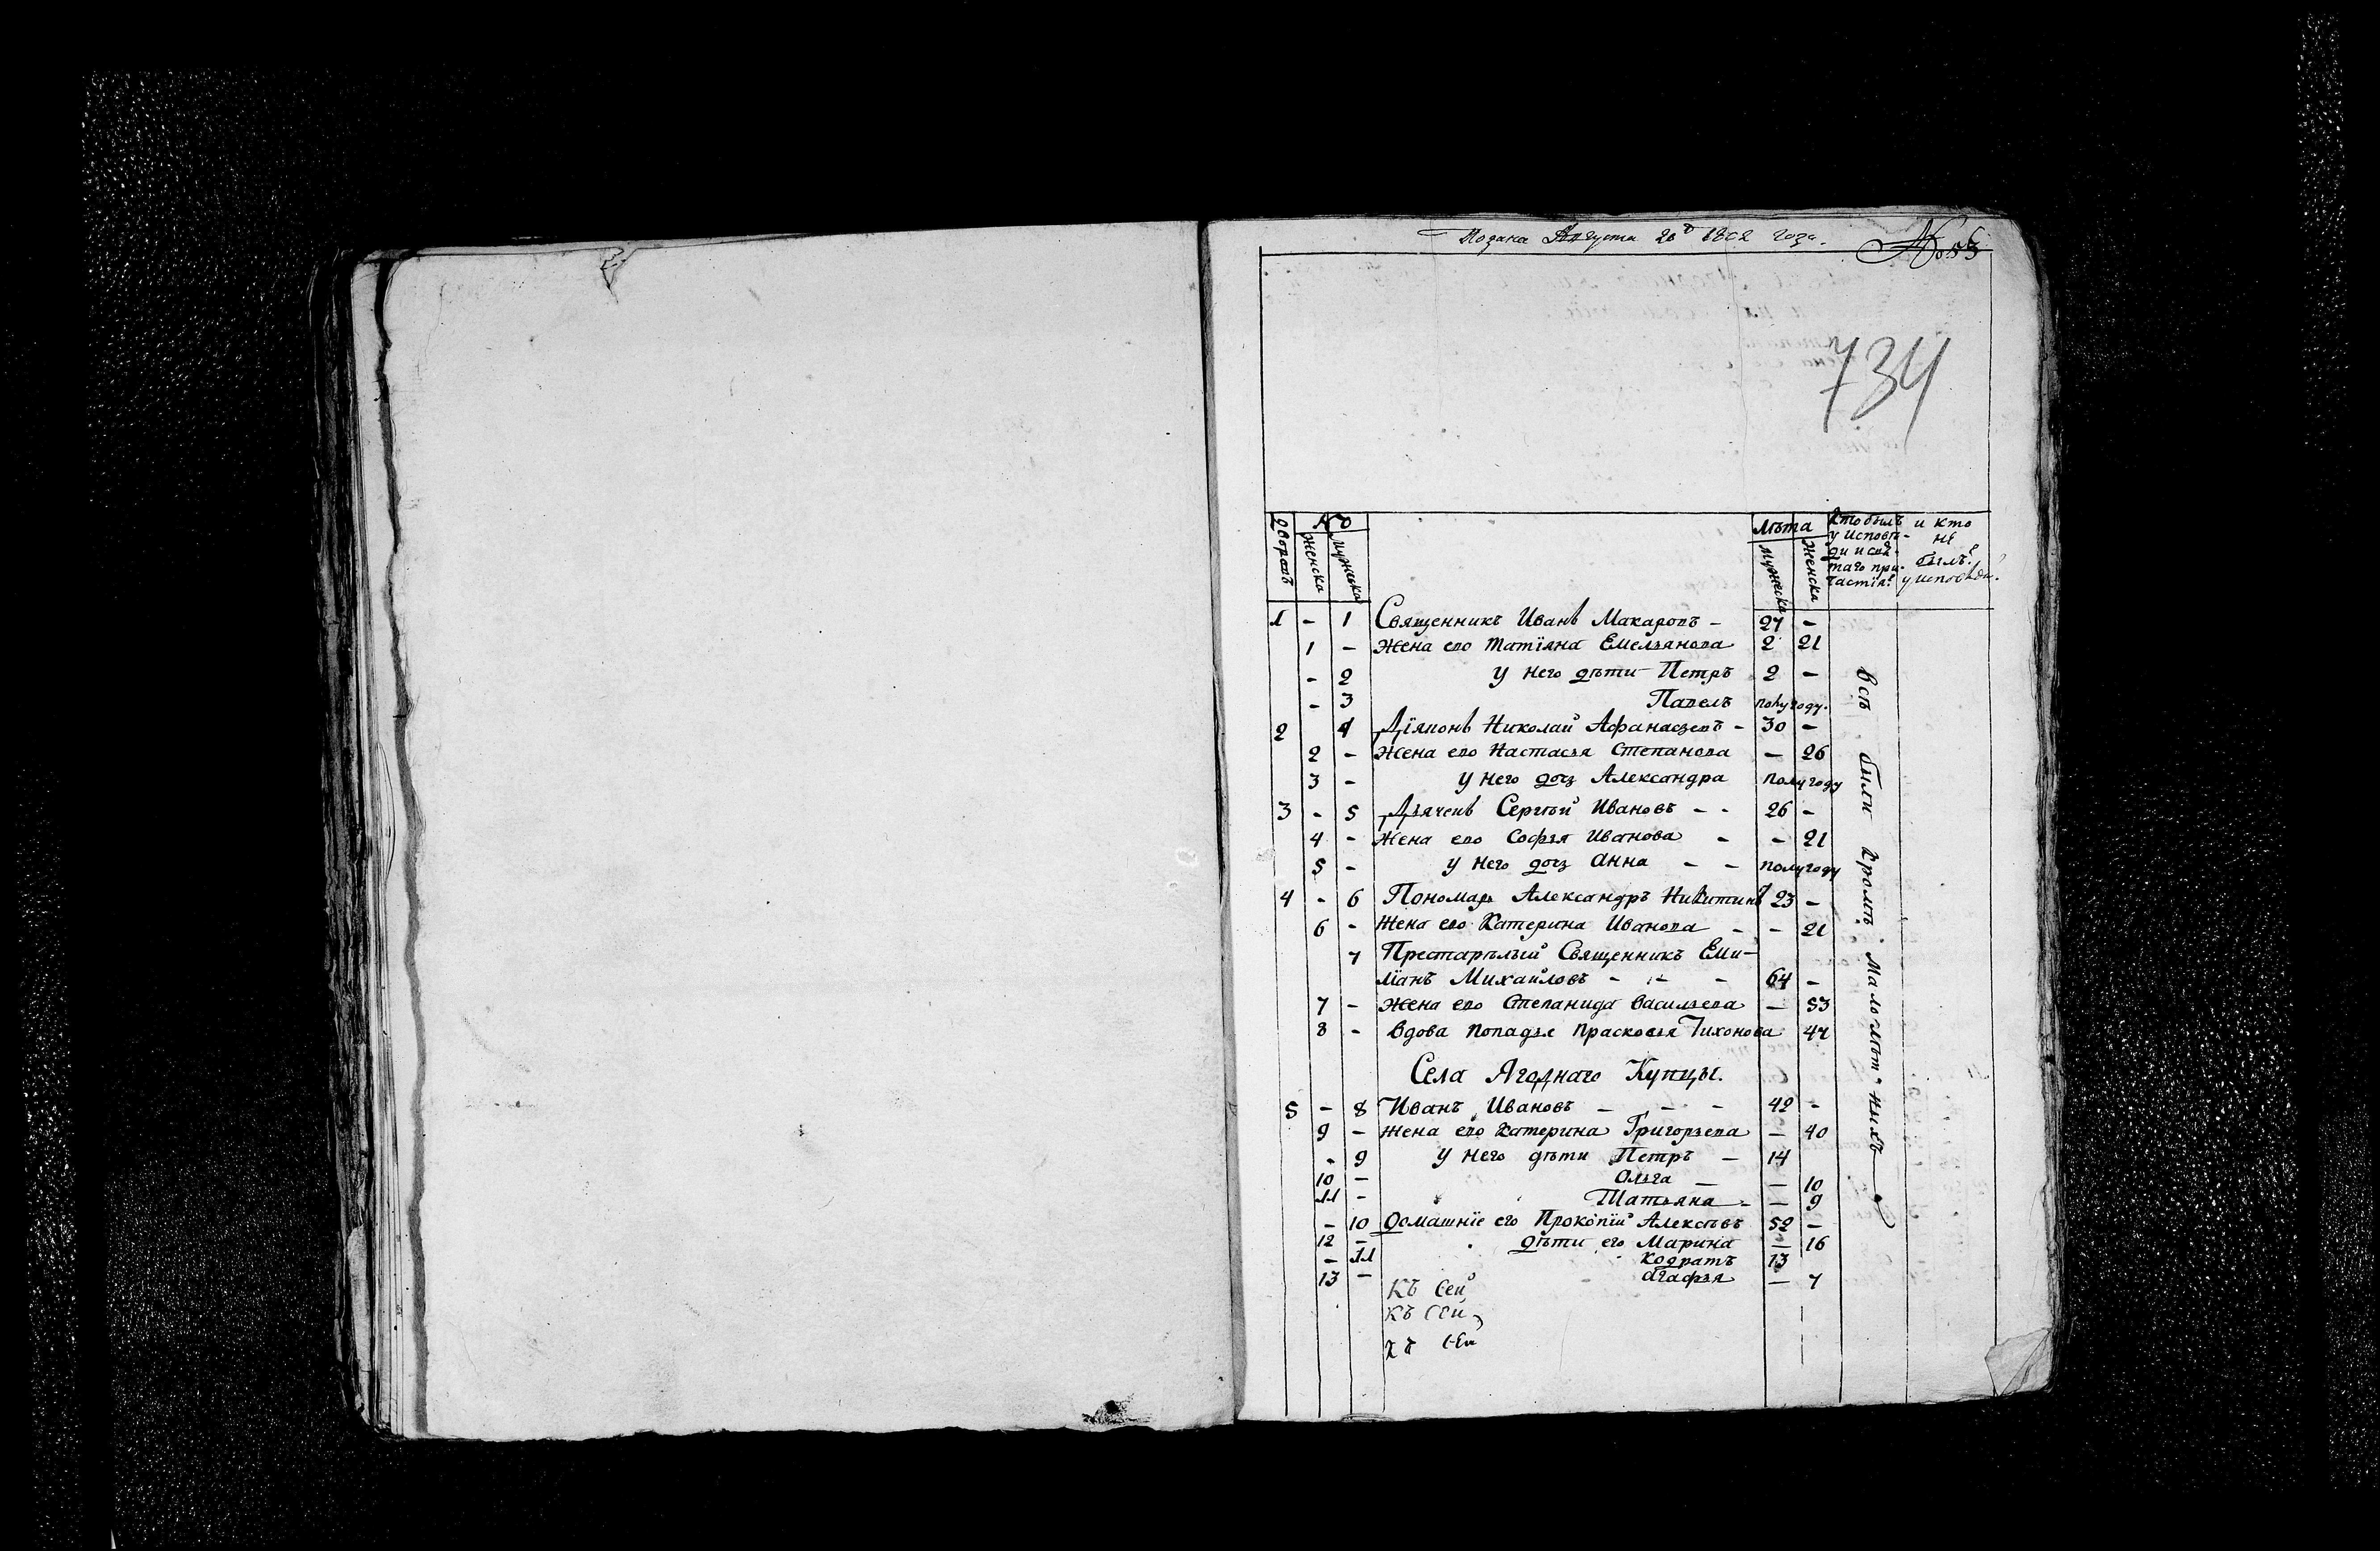 Подана Августа 20го 1802 года.
№ 53
734
Дворовъ
№
женска
мужска
Лѣта
мужеска
женска
Кто былъ
у исповѣ-
ди и свя-
таго при-
частія?
и кто
не
былъ?
у исповѣди.
1 - 1 Священникъ Иванъ Макаровъ - 27 -
1 - Жена его Татіяна Емельянова 2 21
- 2 у него дѣти Петръ 2 -
- 3 Павелъ полугоду.
2 4 Діяконъ Николай Афанасьевъ - 30 -
2 - Жена его Настасья Степанова - 26
3 - у него дочь Александра полугоду
3 - 5 Дьячекъ Сергѣй Ивановъ - - 26 -
4 - Жена его Софья Иванова - - 21
5 - у него дочь Анна - - полугоду
4 - 6 Пономарь Александръ Никитинъ 23 -
6 - Жена его Катерина Иванова - - 21
7 Престарѣлый Священникъ Еми-
ліанъ Михайловъ - - - 64 -
7 - Жена его Степанида Васильева - 53
8 - Вдова попадья Прасковья Тихонова 47
Села Ягоднаго Купцы.
5 - 8 Иванъ Ивановъ - - - 42 -
9 - Жена его Катерина Григорьева - 40
- 9 у него дѣти Петръ - 14
10 - Ольга - - 10
11 - Татьяна - - 9
- 10 Домашніе его Прокопій Алексѣвъ 52 -
12 - дѣти его Марина - 16
- 11 Кодратъ 13
13 - Агафья - 7
Къ сей
Къ сей
Къ сей
Всѣ были кромѣ малолѣтныхъ